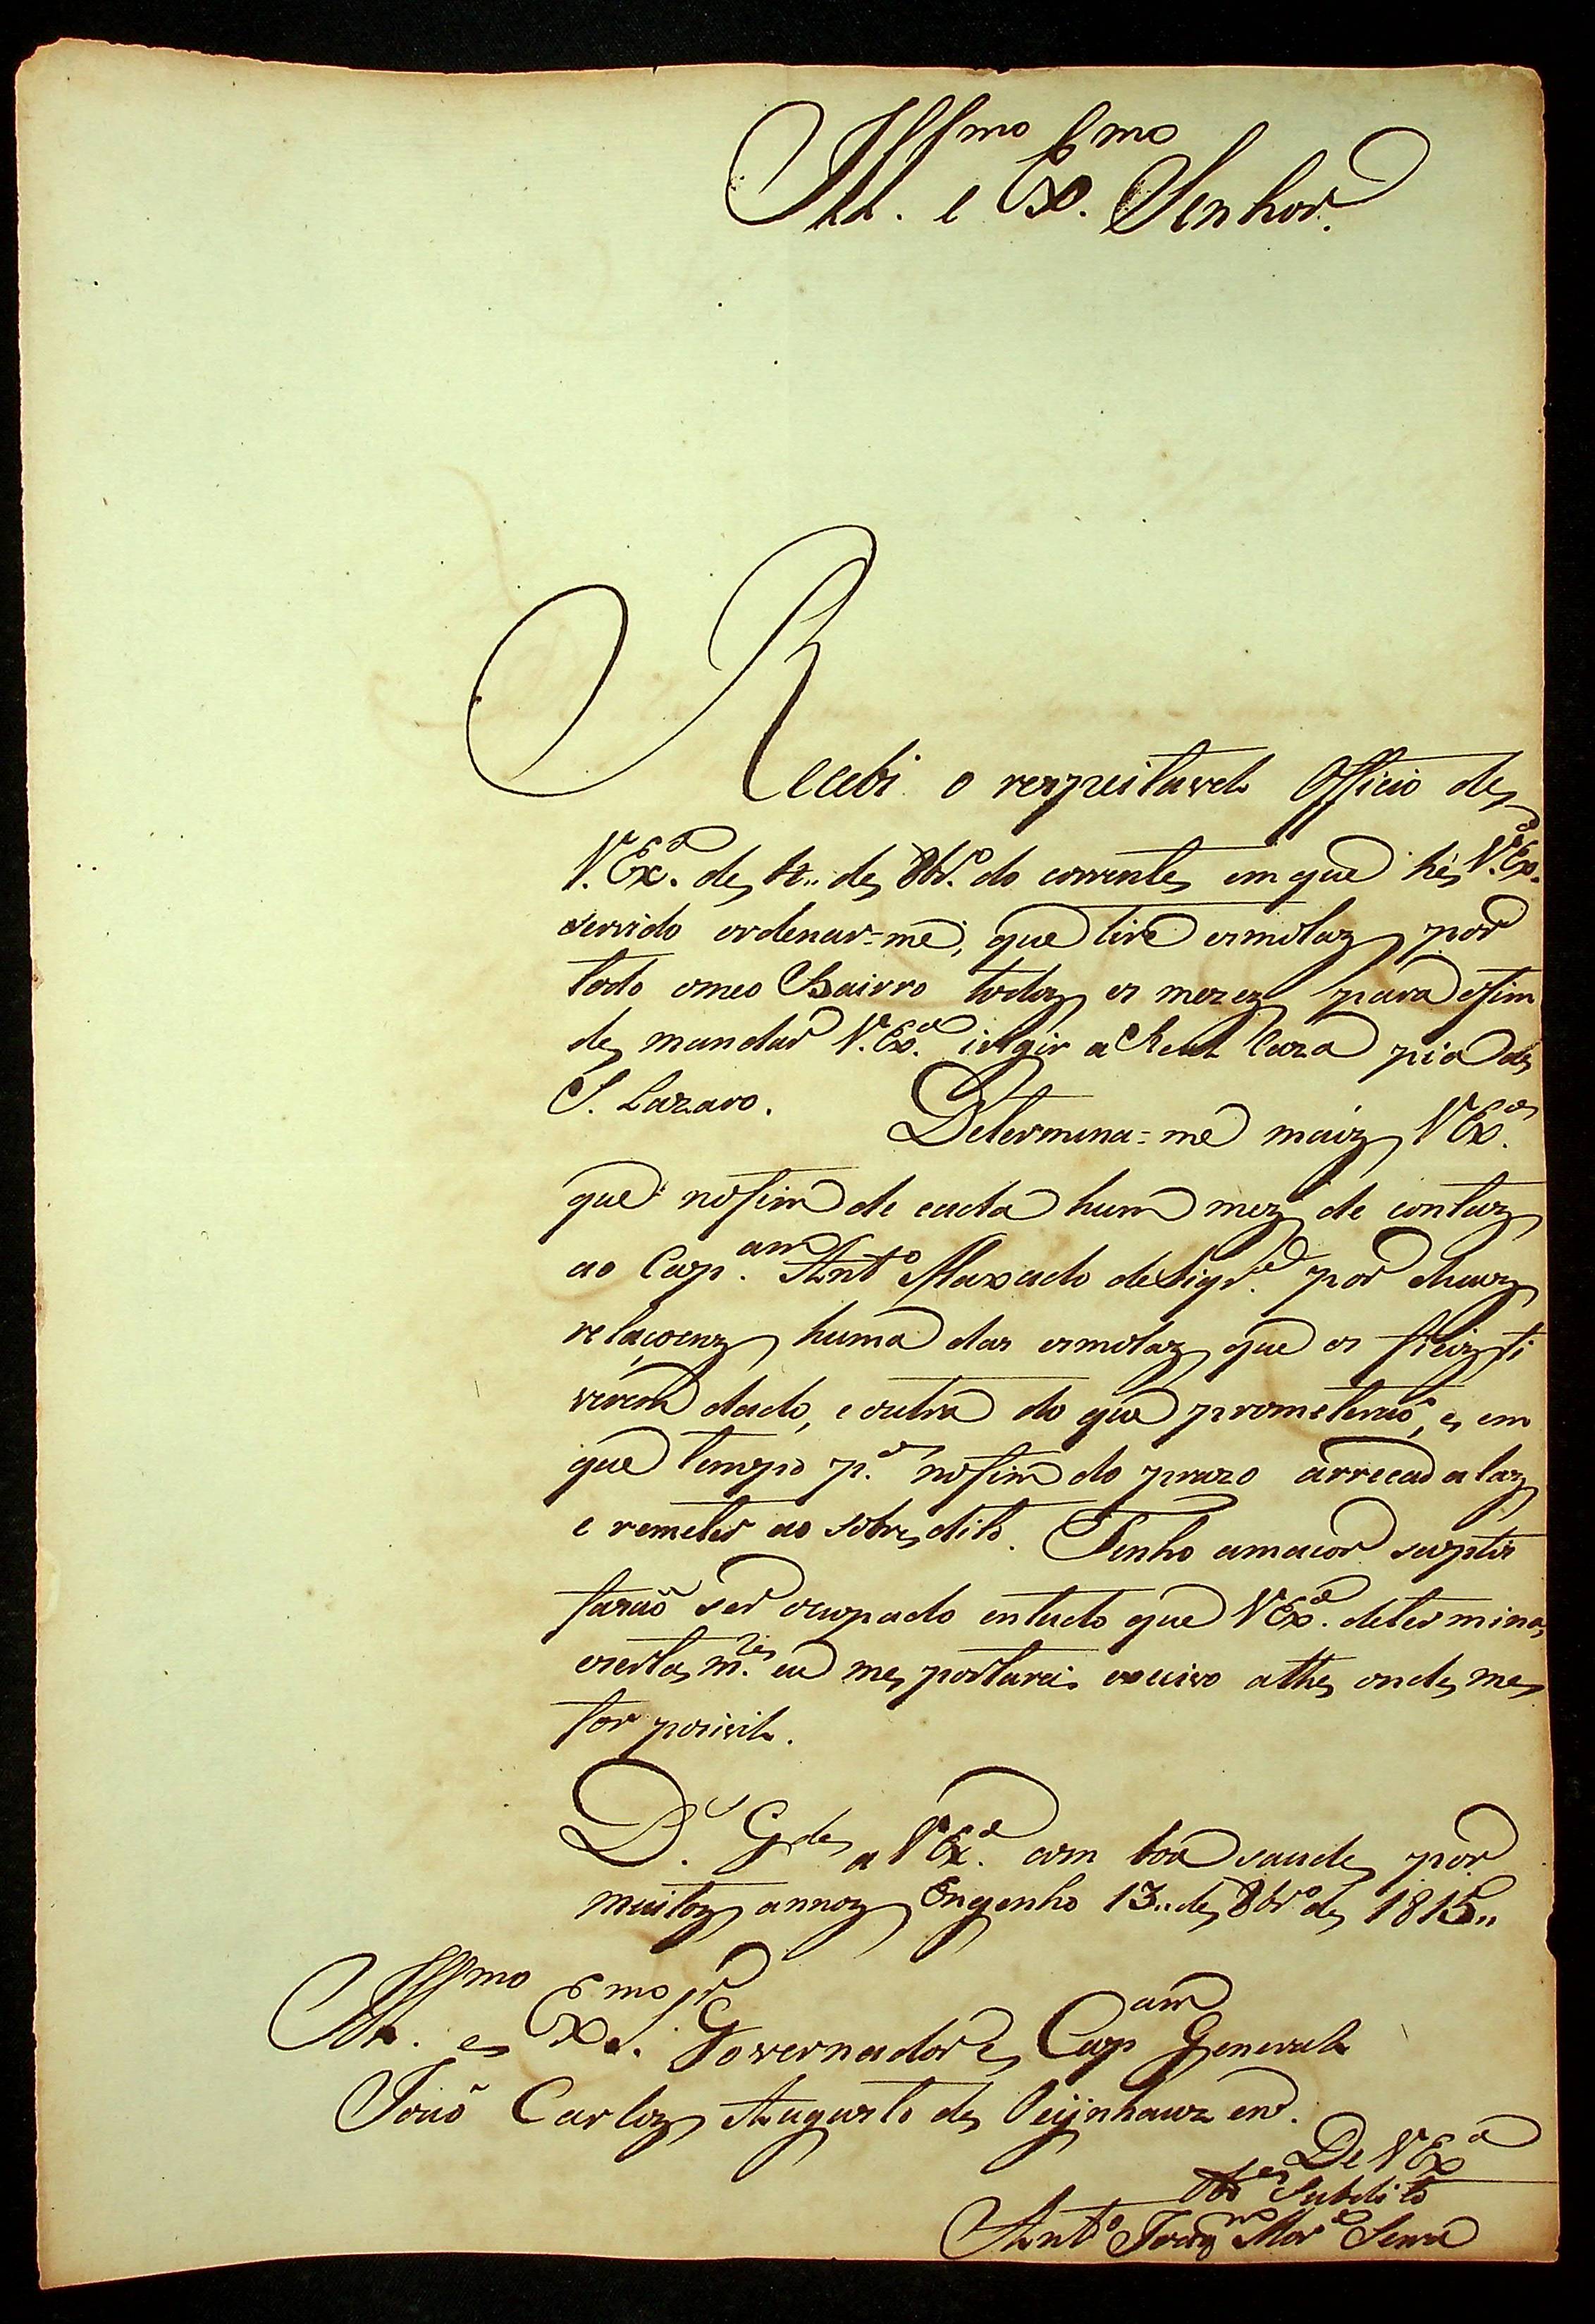 Ill.mo e Ex.mo Senhor.
Recebi o respeitavel Officio de
V. Ex.a de 4 de 8br.o do corrente em que hé V. Ex.a
servido ordenar-me, que tire esmolas por
todo omeo Bairro todos os mezes para ofim
de mandar V. Ex.a irigir a Real Caza pia de
S. Lazaro.
Determina-me mais V Ex.a
que nofim de cada hum mez de contas
ao Cap.am Ant.o Maxado de Siqr.a por duas
relaçoens huma das esmolas que os fieis ti
verem dado, e outra do que prometeraõ, e em
que tempo p.a nofim do prazo arrecadalas
e remeter ao sobre dito. Tenho amaior
ser ocupado entudo que V Ex.a determina,
eu me portarei athe onde me
for posivel.
D.s G.de a V Ex.a com boa saude por
muitos annos Engenho 13 de 8br.o de 1815
Ill.mo e Ex.mo S.r Governador e Cap.am General
Joaõ Carlos Augusto de Oeijnhauzen.
De V Ex.a
Subdito
Ant.o Joaq.m Mor.a Serra